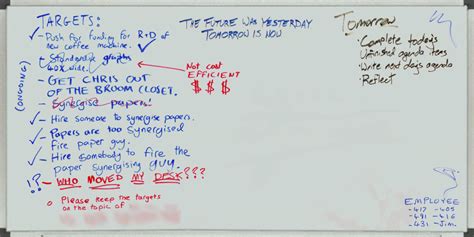 TARGETS:
- Push for funding for R+D of
new coffee machine.
- Standardise graphs
40x wide.
(ONGOING)
- GET CHRIS OUT
OF THE BROOM CLOSET.
- Synergise papers!
- Hire someone to synergise papers.
- Papers are too synergised
fire paper guy.
- Hire somebody to fire the
paper synergising guy.
!? - WHO MOVED MY DESK???
Please keep the targets
on the topic of
THE FUTURE WAS YESTERDAY
TOMORROW IS NOW
NOT COST
EFFICIENT
$ $ $
Tomorrow
• Complete todays
Unfinished agenda items
• Write next days agenda
• Reflect
EMPLOYEE
-417 -405
-416 -418
-431 -Jim.